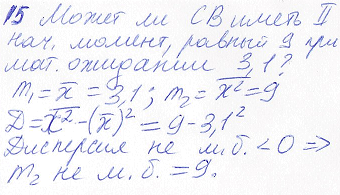 15 Может ли СВ иметь II
нач. момент, равный 9 при
мат. ожидании 3,1?
m₁ = x̅ = 3,1; m₂ = x̅²̅ = 9
D = x̅²̅ - (x̅)² = 9 - 3,1²
Дисперсия не м.б. < 0 =>
m₂ не м.б. = 9.